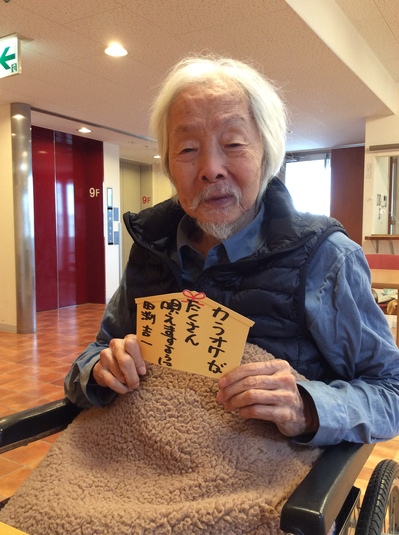 カラオケが
たくさん
唄えますように
田渕 吉一
9F
9F